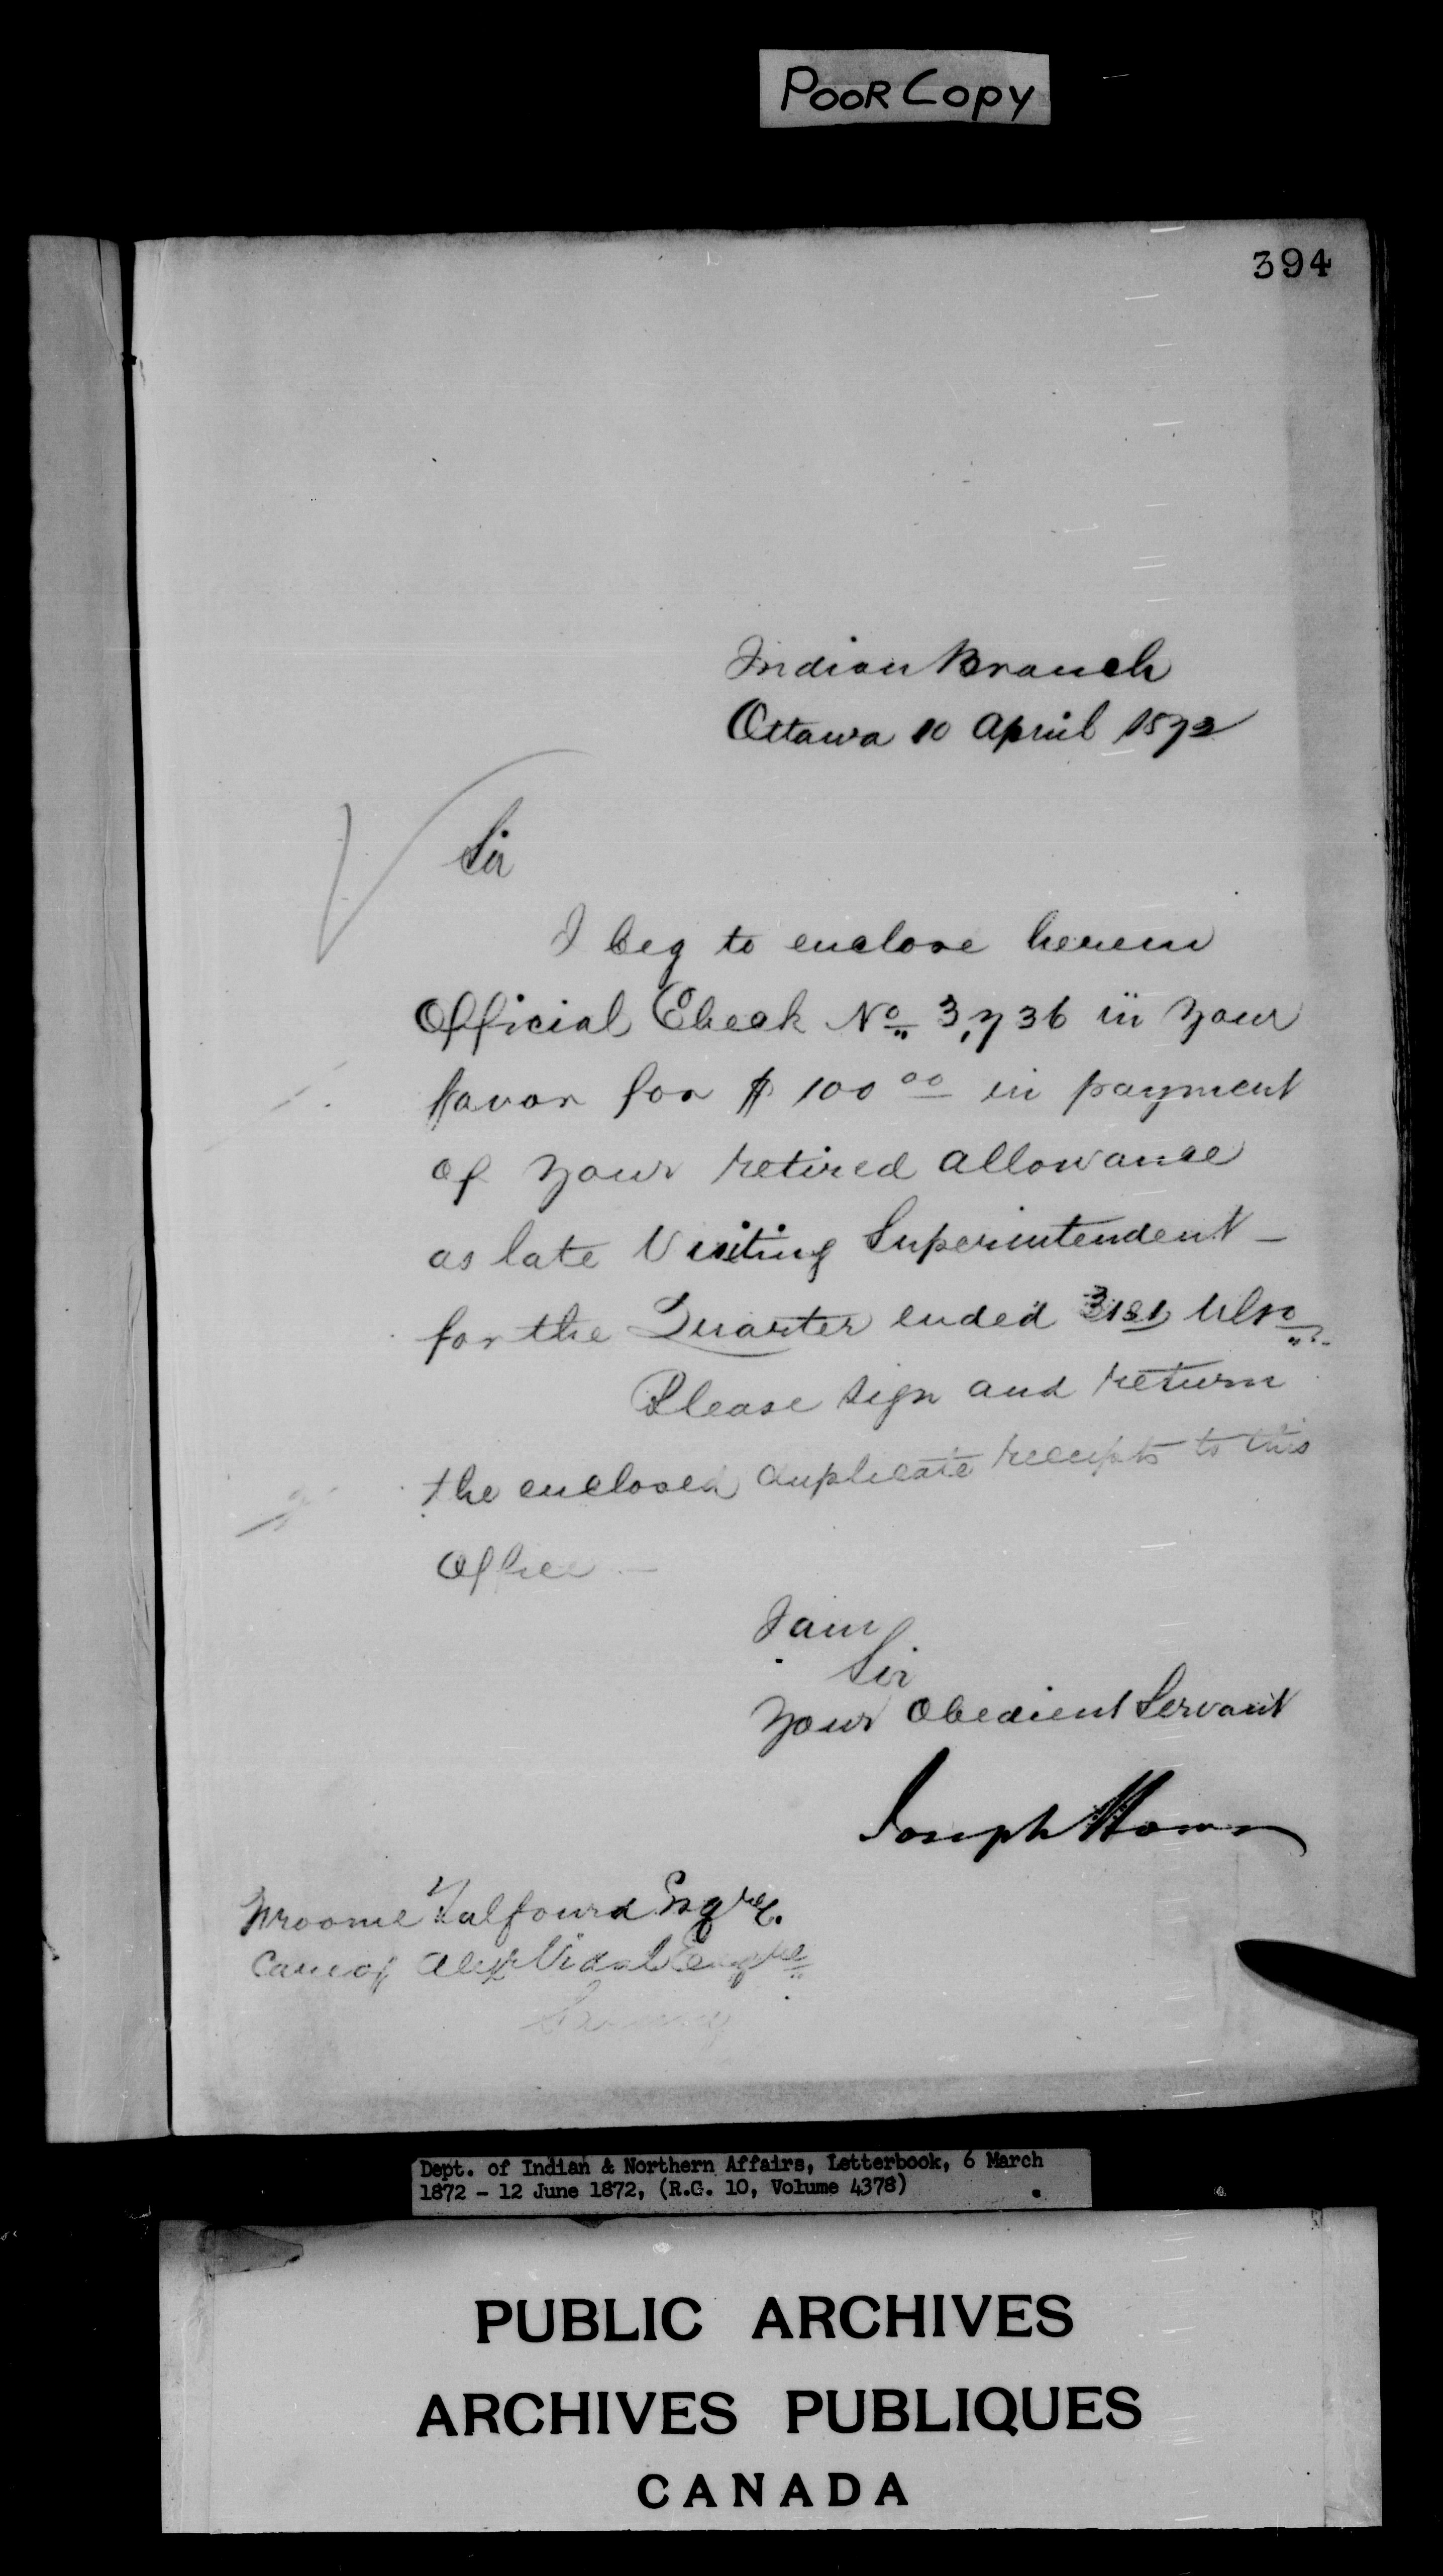 POOR COPY
394
Indian Branch
Ottawa 10 April 1872
Sir
I beg to enclose herein
Official Check No. 3,736 in your
favor for $ 100 00 in payment
of your retired allowance
as late Visiting Superintendent –
for the Quarter ended 31st Ulto.
Please sign and return
the enclosed duplicate receipts to this
Office –
I am
Sir
Your Obedient Servant
Joseph Howe
Froome Talfourd Esqre.
Care of Alexr Vidal Esqre
Sarnia
Dept. of Indian & Northern Affairs, Letterbook, 6 March
1872 - 12 June 1872, (R.G. 10, Volume 4378)
PUBLIC ARCHIVES
ARCHIVES PUBLIQUES
CANADA